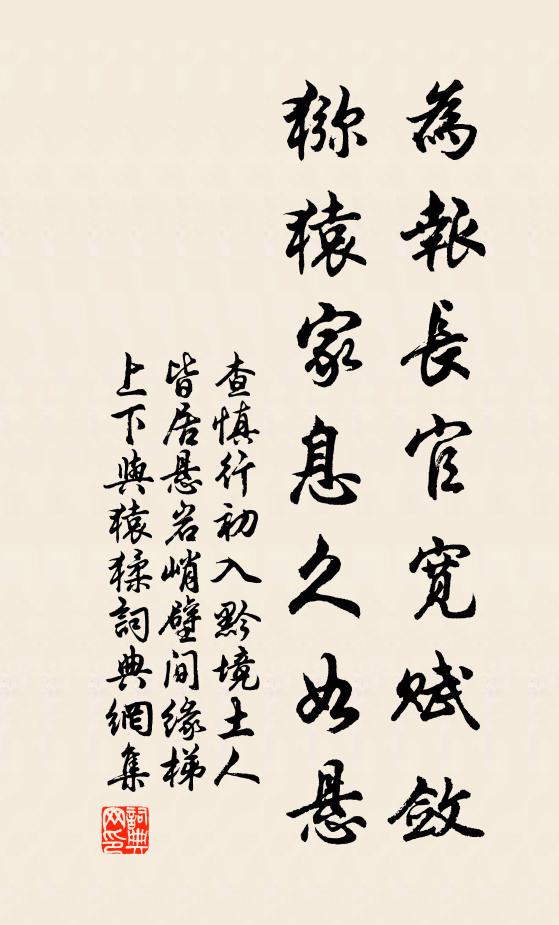 為報長官寬賦斂
獼猿家息久如懸
查慎行初入黔境土人
皆居悬岩峭壁间缘梯
上下與猿猱詞典網集
詞典網印